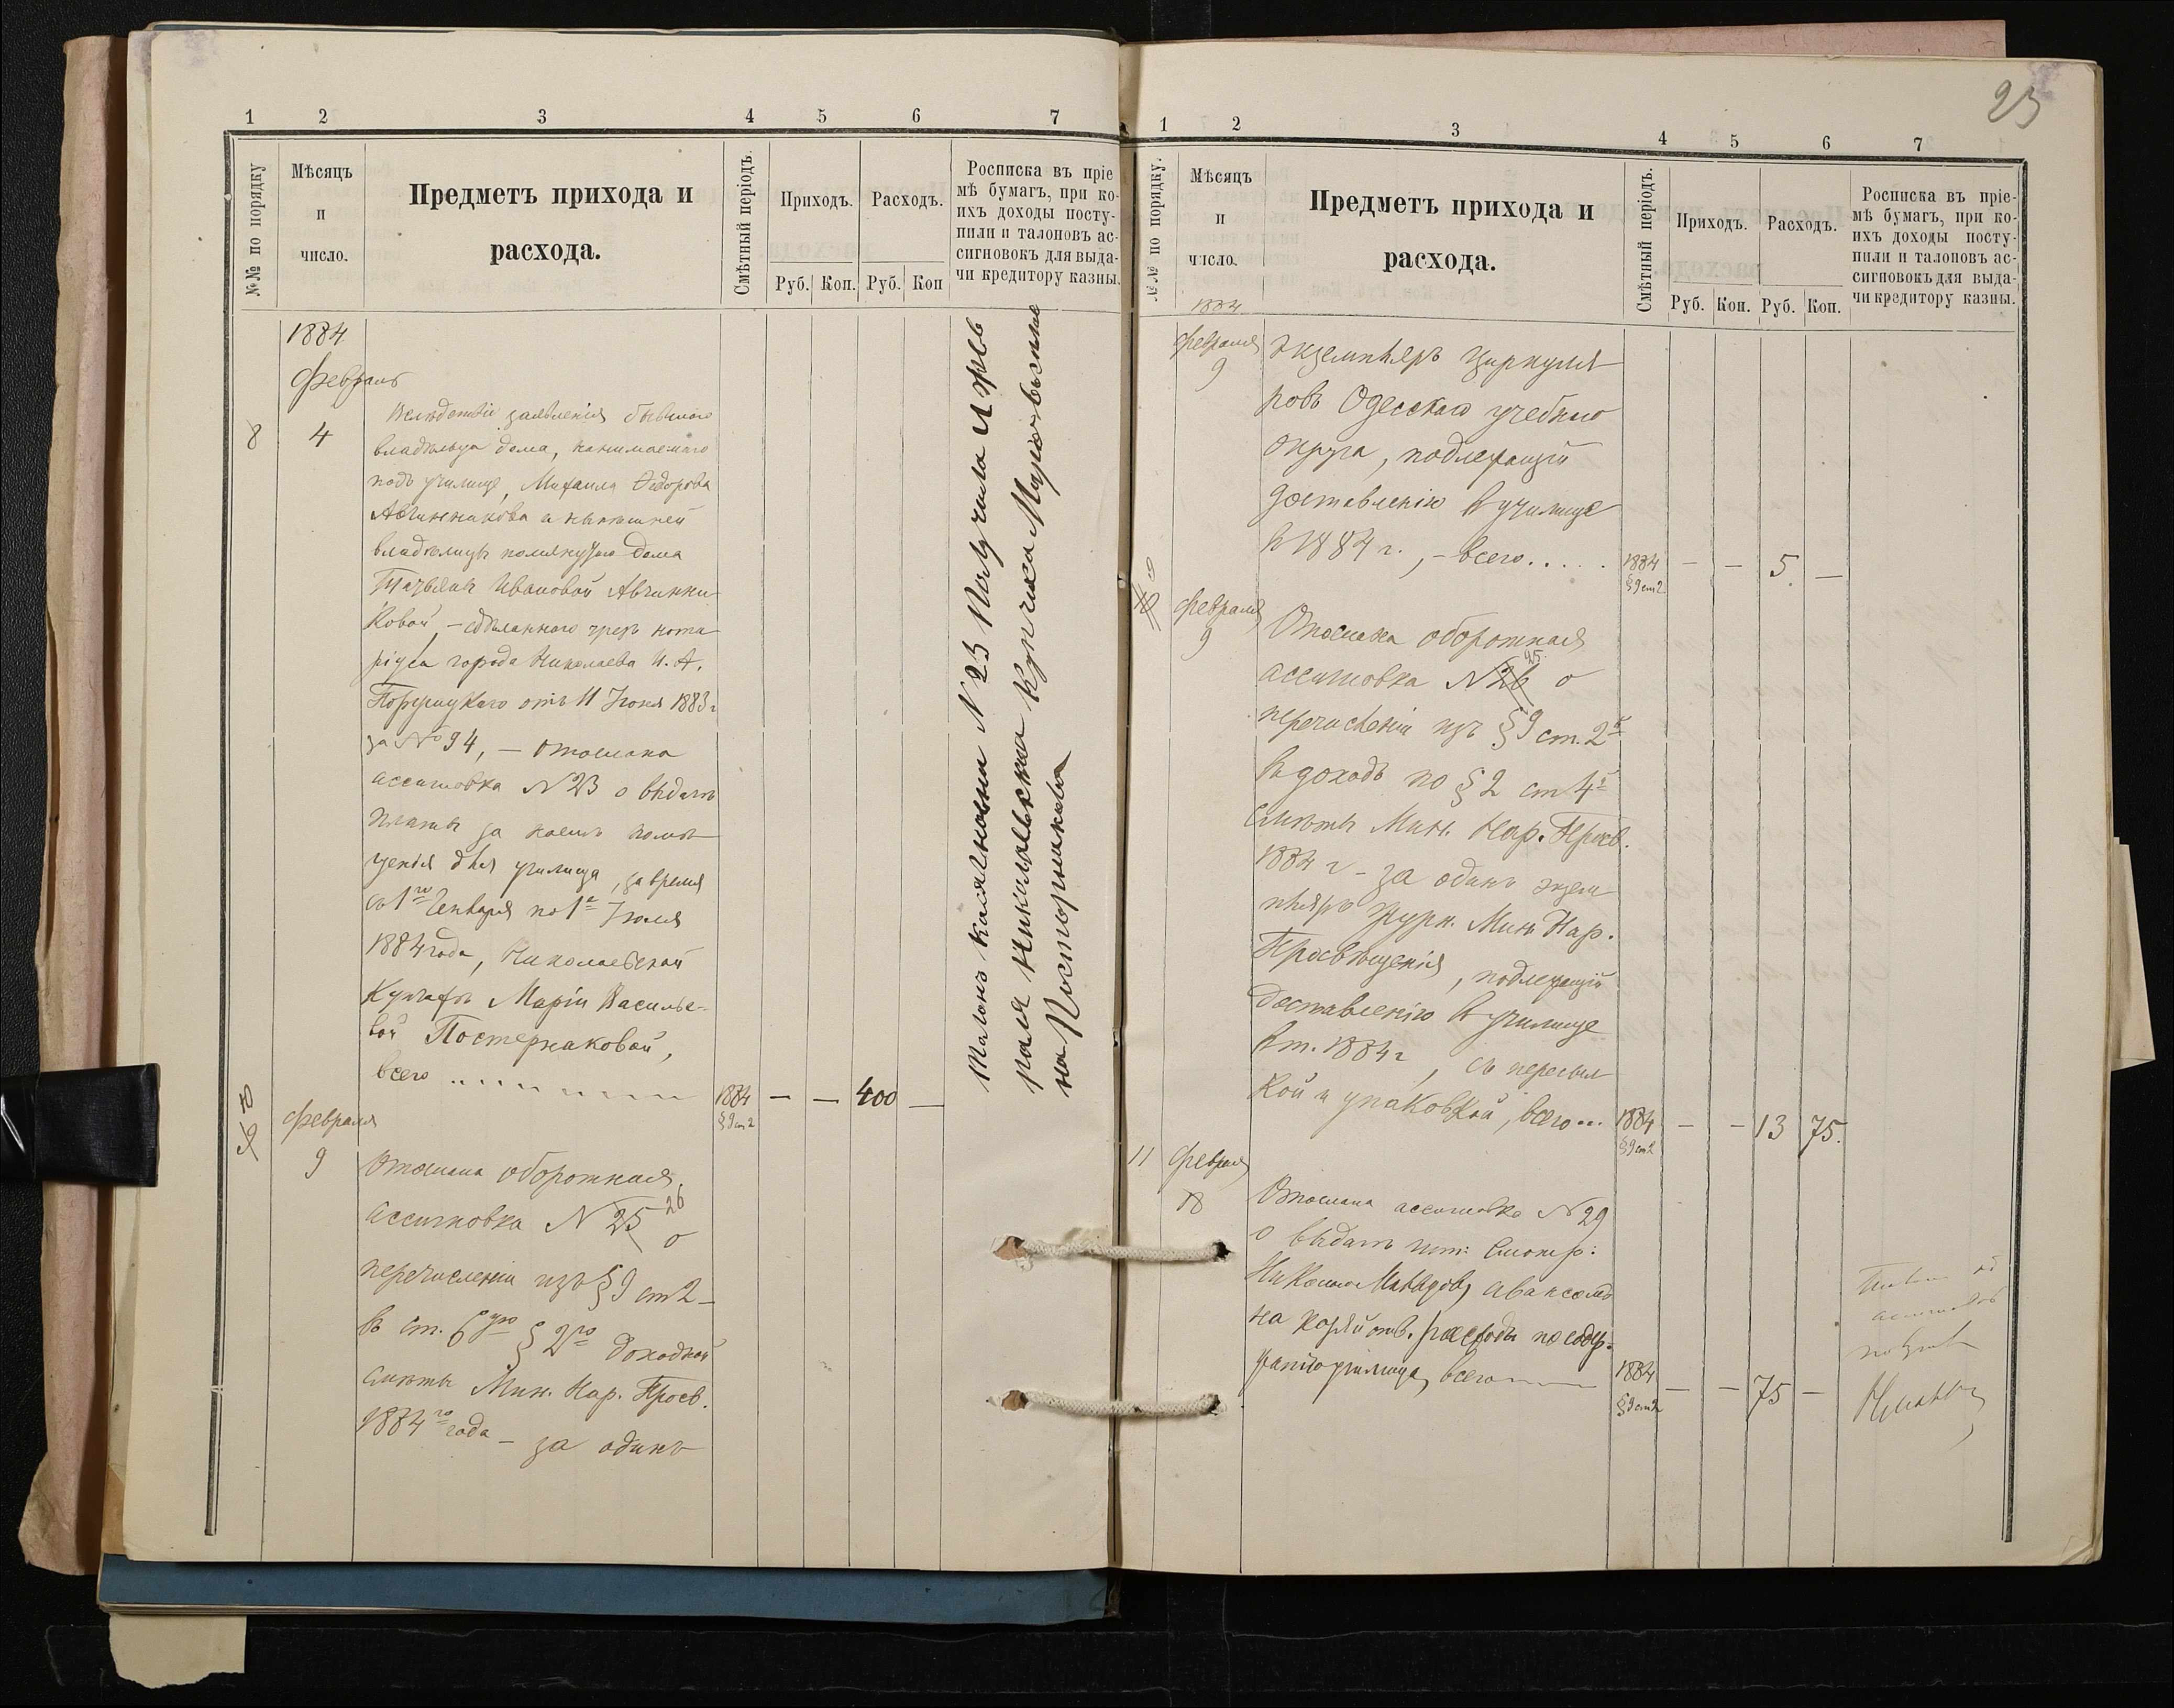 1 2 3 4 5 6 7
№№ по порядку
Мѣсяцъ
и
число.
Предметъ прихода и
расхода.
Смѣтный періодъ.
Приходъ.
Расходъ.
Руб. Коп. Руб. Коп
Росписка въ пріе
мѣ бумагъ, при ко-
ихъ доходы посту-
пили и талоновъ ас-
сигновокъ для выда-
чи кредитору казны.
1884
Февраль
8 4
Вслѣдствіе заявленія бывшаго
владѣльца дома, нанимаемаго
подъ училище, Михаила Ѳедорова
Авчинникова и нынѣшней
владѣлицы помянутаго дома
Татьяны Ивановой Авчинни
ковой, – сдѣланнаго чрезъ нота
ріуса города Николаева И. А.
отъ 11 Іюня 1883 г
за № 94, – отослана
ассигновка N 23 о выдачѣ
платы за наемъ помѣ
щенія для училища, за время
съ 1го Января по 1е Іюля
1884 года, Николаевской
Купчихѣ Маріи Василье-
вой Постернаковой,
всего
1884
§9 ст 2
— — 400 —
Талонъ къ ассигновкѣ N 23 Получила Февр
раля Николаевская Купчиха Марія Василіе
на Постернакова
10
9
Февраля
9
Отослана оборотная
ассигновка N 25 26 о
перечисленіи изъ § 9 ст 2
въ ст. 6ую § 2го доходной
смѣты Мин. Нар. Просв.
1884го года – за одинъ
23
1 2 3 4 5 6 7
№№ по порядку.
Мѣсяцъ
и
число.
Предметъ прихода и
расхода.
Смѣтный періодъ.
Приходъ.
Расходъ.
Руб. Коп. Руб. Коп.
Росписка въ пріе-
мѣ бумагъ, при ко-
ихъ доходы посту-
пили и талоновъ ас-
сигновокъ для выда-
чи кредитору казны.
1884
Февраля
9
экземпляръ циркуля
ровъ Одесскаго учебнаго
округа, подлежащій
доставленію въ училище
въ 1884 г., – всего.....
1884
§9 ст 2
— — 5. —
10 9
Февраля
9
Отослана оборотная
ассигновка N 26 25 о
перечисленіи изъ § 9 ст. 2й
въ доходъ по § 2 ст 4й
смѣты Мин. Нар. Просв.
1884 г – за одинъ экзем
пляръ Журн. Мин. Нар.
Просвѣщенія, подлежащій
доставленію въ училище
въ т. 1884 г, съ пересыл
кой и упаковкой, всего...
1884
§9 ст 2
— — 13 75.
11 Февраля
18
Отослана ассигновка N 29
о выдачѣ шт: Смотр:
авансомъ
на расходы по содер-
жанію училища, всего
1884
§9 ст 2
— — 75 —